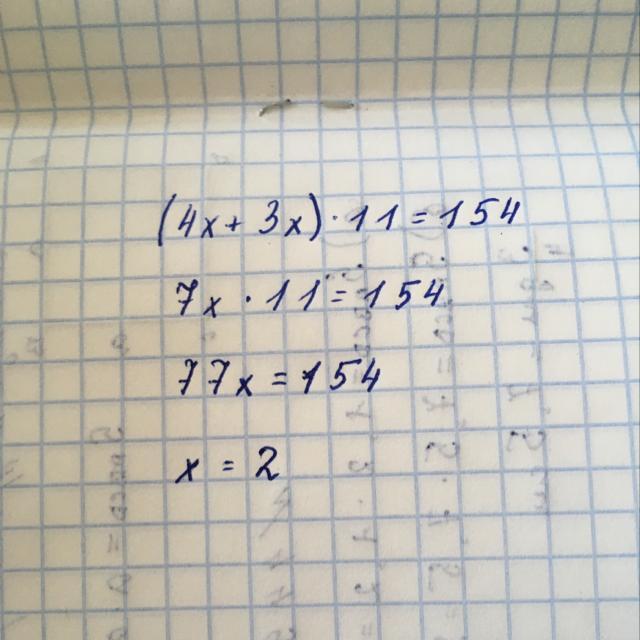 (4x + 3x) · 11 = 154
7x · 11 = 154
77x = 154
x = 2